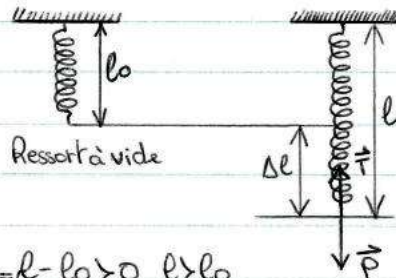 l₀
l
Ressort à vide
Δl
T⃗
P⃗
=l-l₀>0 l>l₀